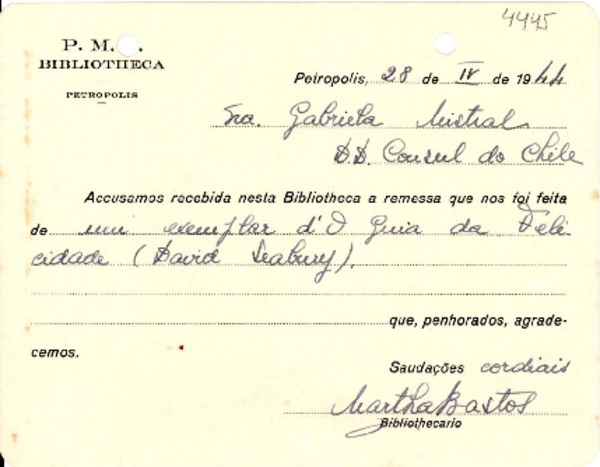 4445
P. M.
BIBLIOTHECA
PETROPOLIS
Petropolis, 28 de IV de 1944
Sra. Gabriela Mistral
D.D. Consul do Chile
Accusamos recebida nesta Bibliotheca a remessa que nos foi feita
de um exemplar d'O Guia da Feli
cidade (David Seabury).
que, penhorados, agrade-
cemos.
Saudações cordiais
Martha Bastos
Bibliothecario